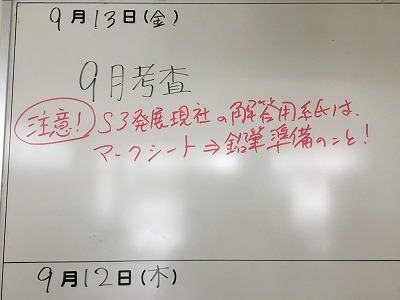 9月13日(金)
9月考査
注意! S3発展現社の解答用紙は、
マークシート⇒鉛筆準備のこと!
9月12日(木)